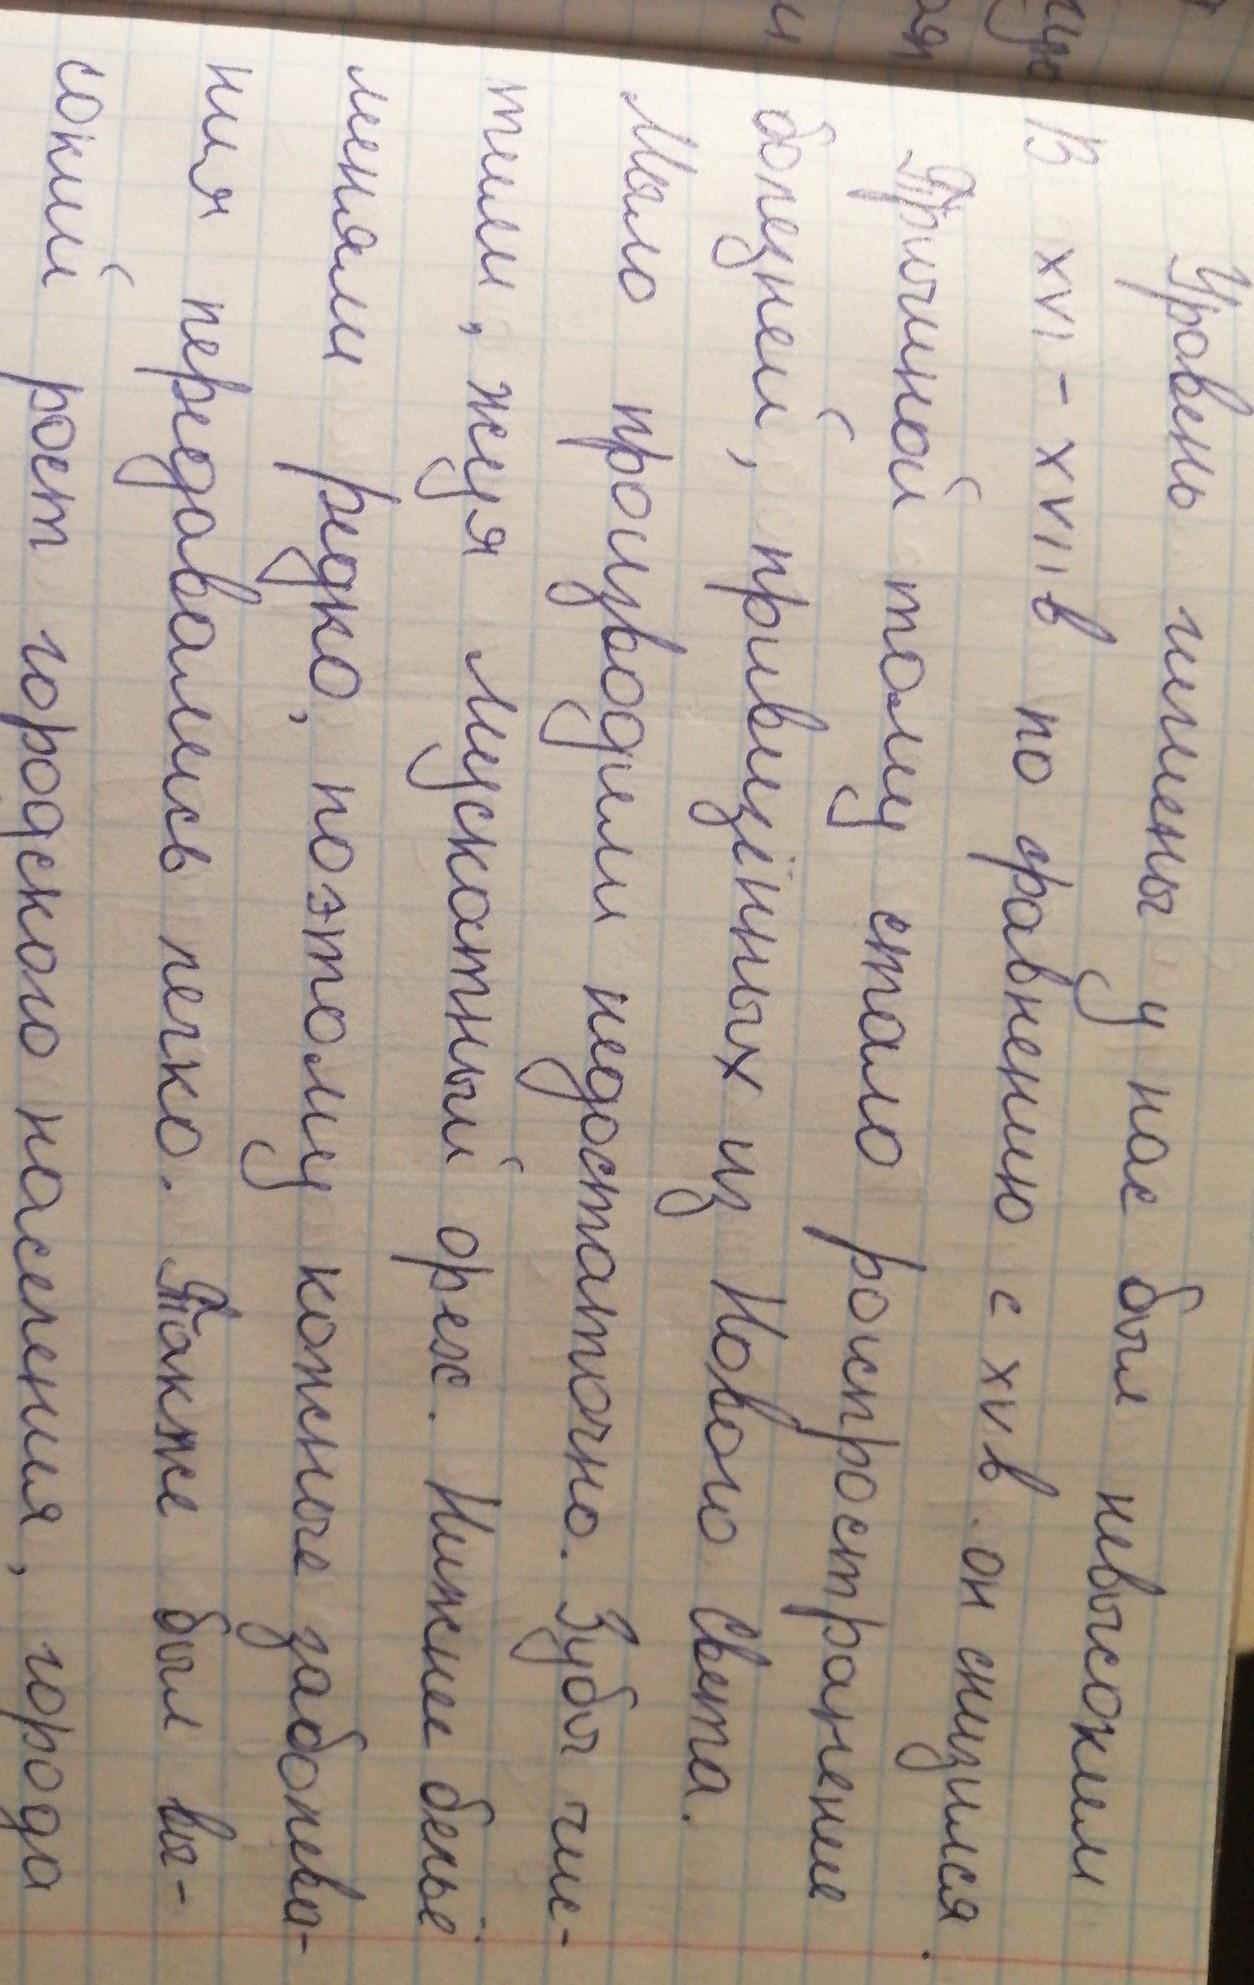 Уровень гигиены у нас был невысоким
В XVI - XVII в по сравнению с XV в. он снизился.
Причиной тому стало роспространение
болезней, привизённых из Нового Света.
Мыло производили недостаточно. Зубы чис-
тили, жуя мускатный орех. Нижнее бельё
меняли редко, поэтому кожные заболева-
ния передавались легко. Также был вы-
сокий рост городского населения, города